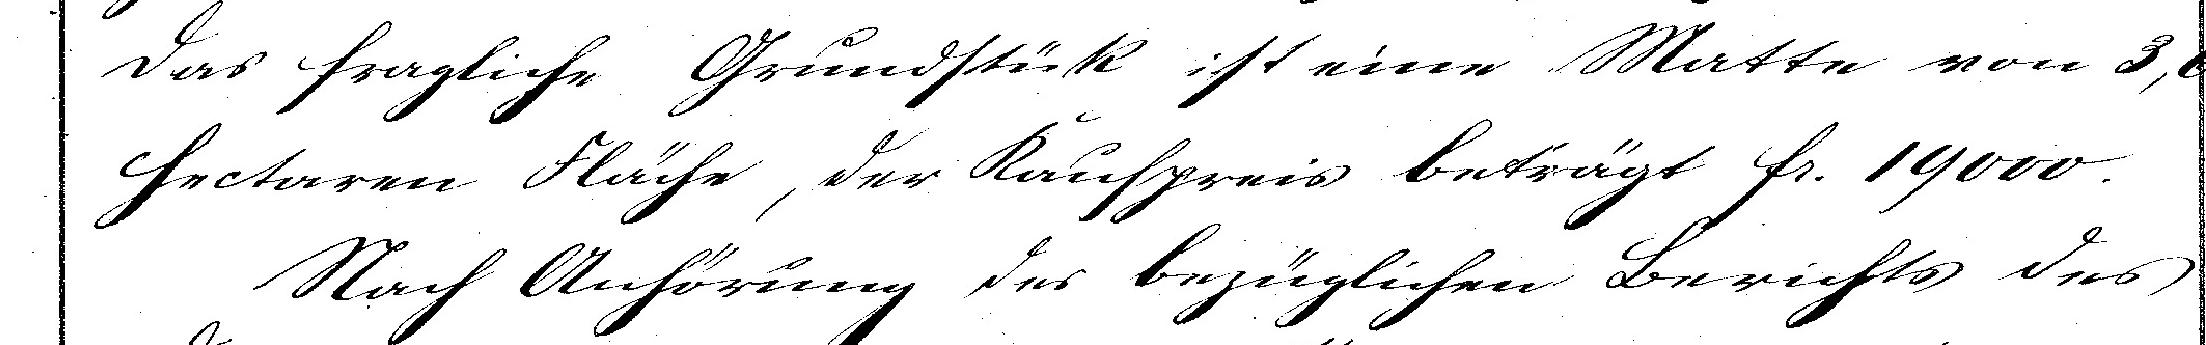 Das fragliche Grundstük ist eine Matte von 3,6
Hectaren Fläche, der Kaufpreis beträgt fr. 19000.
Nach Anhörung des bezüglichen Berichts des